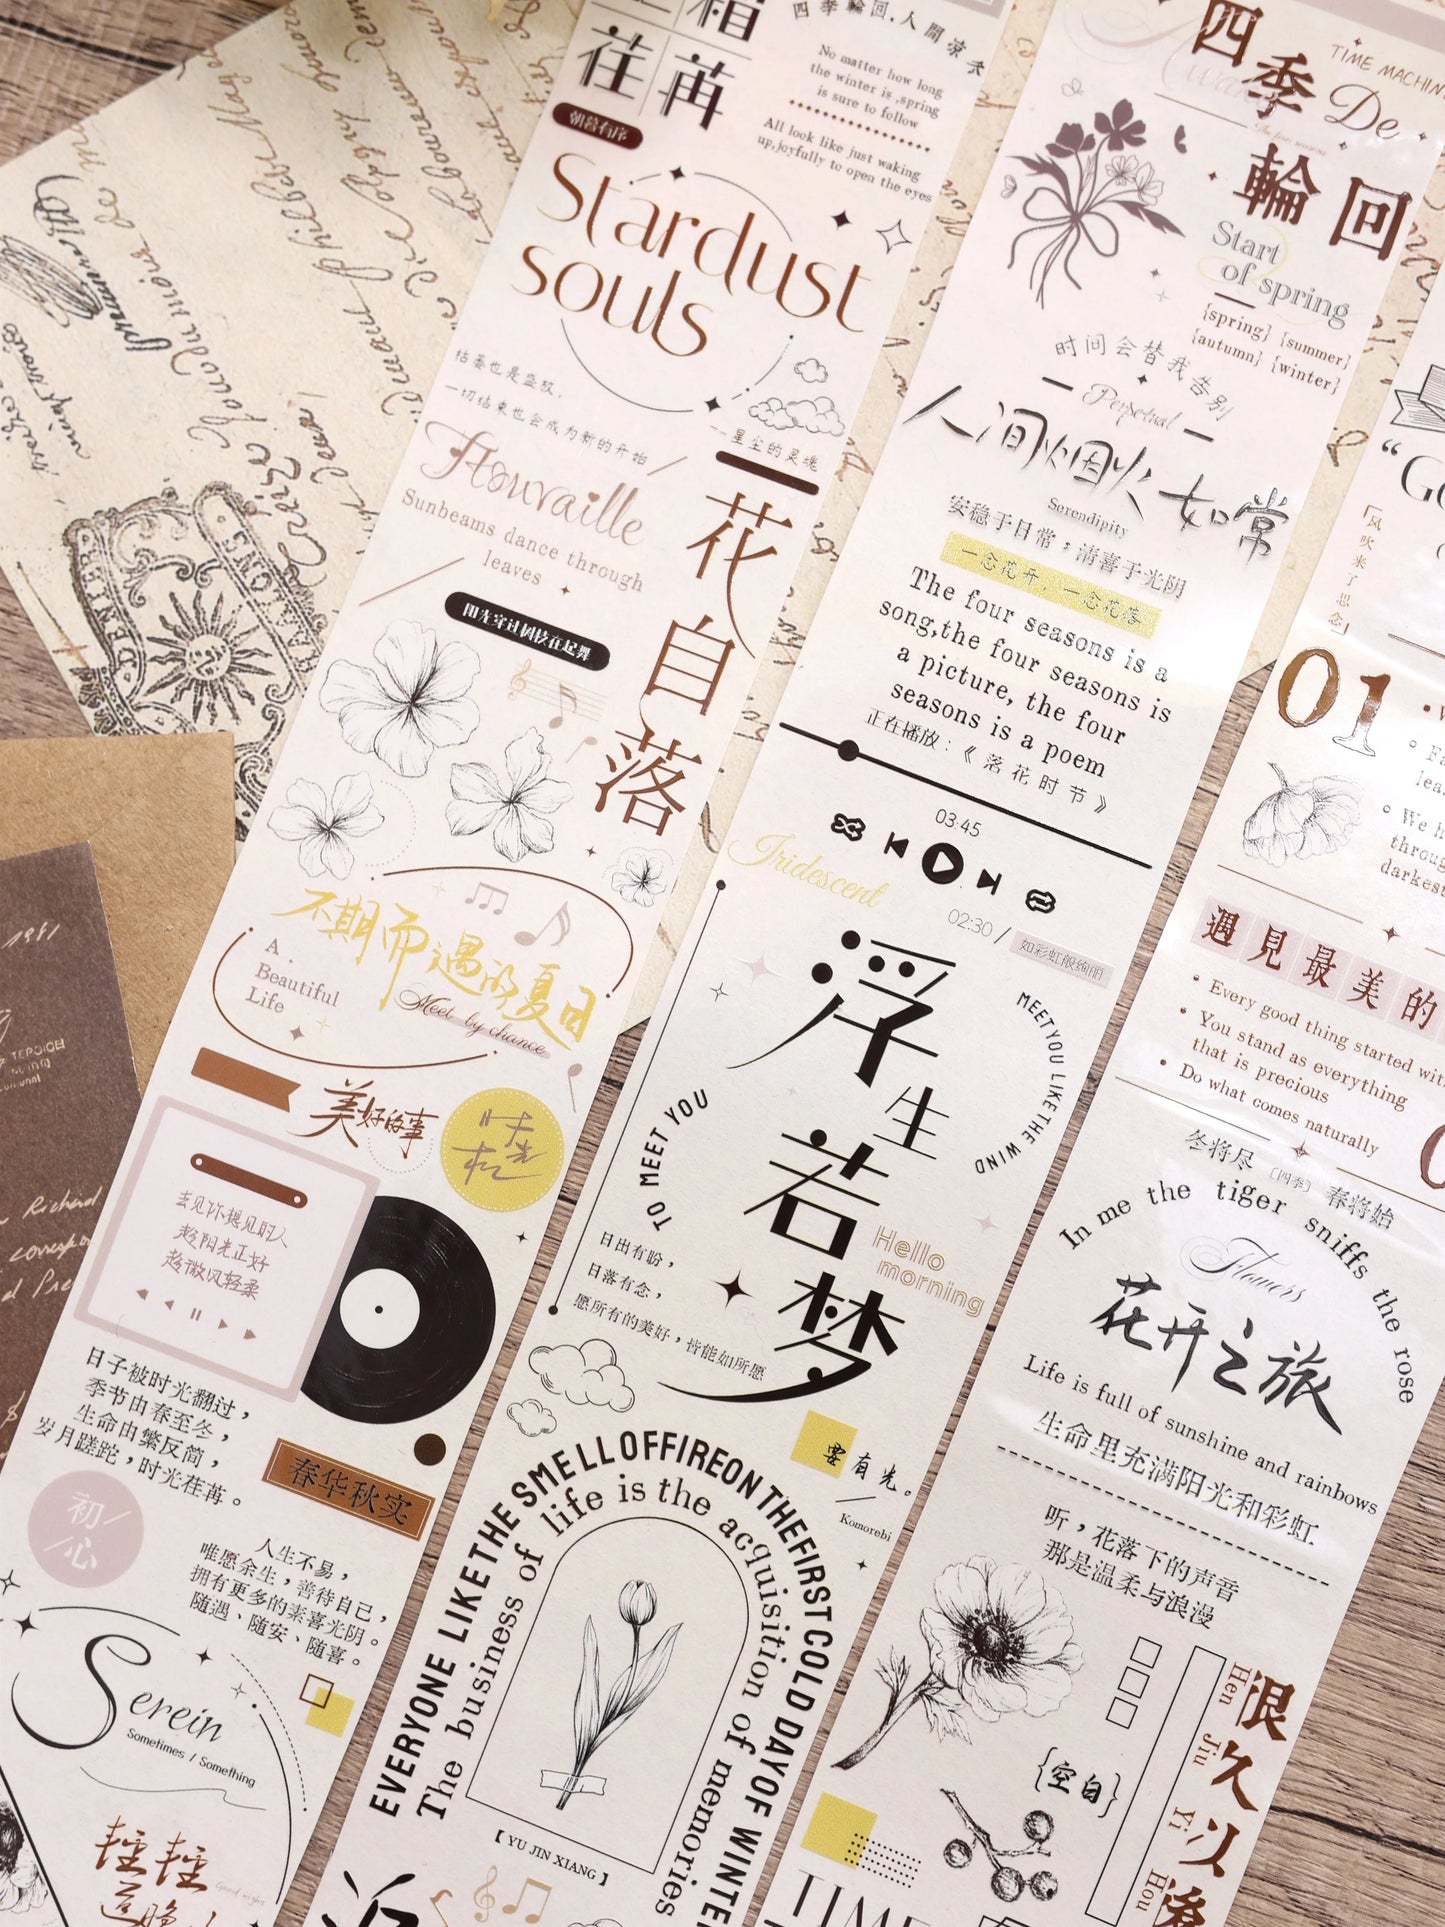 荏苒
朝暮有序
四季輪回,人間凉冬
No matter how long
the winter is ,spring
is sure to follow
All look like just waking
up,joyfully to open the eyes
Stardust
souls
枯萎也是盛放,
一切结束也会成为新的开始
星尘的灵魂
Flouraille
Sunbeams dance through
leaves
阳光穿过树枝在起舞
花自落
不期而遇的夏日
A
Beautiful
Life
Meet by chance
美好的事
时光机
去见你想见的人
趁阳光正好
趁微风轻柔
日子被时光翻过,
季节由春至冬,
生命由繁反简,
岁月蹉跎,时光荏苒。
春华秋实
初心
人生不易,
唯愿余生,善待自己,
拥有更多的素喜光阴。
随遇、随安、随喜。
Serein
Sometimes / Something
四季 De
輪回
TIME MACHIN
Start
of spring
{spring} {summer}
{autumn} {winter}
时间会替我告别
Perpetual
人间烟火如常
Serendipity
安稳于日常,清喜于光阴
一念花开,一念花落
The four seasons is a
song,the four seasons is
a picture, the four
seasons is a poem
正在播放:《落花时节》
03:45
02:30
Iridescent
如彩虹般绚丽
浮生若梦
MEET YOU LIKE THE WIND
TO MEET YOU
Hello
morning
日出有盼,
日落有念,
愿所有的美好,皆能如所愿
要有光。
Komorebi
EVERYONE LIKE THE SMELL OF FIRE ON THE FIRST COLD DAY OF WINTER
The business of life is the acquisition of memories
【 YU JIN XIANG 】
“Go
「风吹来了思念」
01
We h
throug
darkest
遇見最美的
Every good thing started with
You stand as everything
that is precious
Do what comes naturally
冬将尽 [四季] 春将始
In me the tiger sniffs the rose
Flowers
花开之旅
Life is full of sunshine and rainbows
生命里充满阳光和彩虹.
听,花落下的声音
那是温柔与浪漫
{空白}
很久以後
Hen Jiu Yi Hou
TIME
1981
Richard